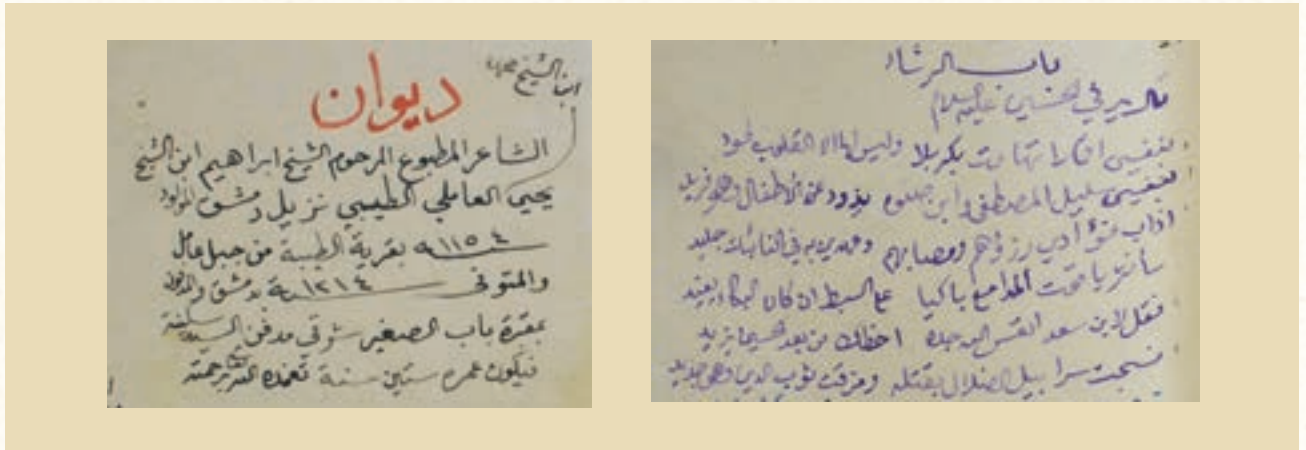 ديوان
ابن الشيخ محمد
الشاعر المطبوع المرحوم الشيخ ابراهيم ابن الشيخ
يحيى العاملي الطيبي نزيل دمشق المولود
سنة ١١٥٤ بقرية الطيبة من جبل عامل
والمتوفى سنة ١٢١٤ بدمشق والمدفون
بمقبرة باب الصغير شرقي مدفن السيدة سكينة
فيكون عمره ستين سنة تغمده الله برحمته
باب الرثاء
قال يرثي الحسين عليه السلام
بنفسي اقمارا تهاوت بكربلا وليس لها الا القلوب لحود
بنفسي سليل المصطفى وابن صنوه يذود عن الاطفال وهو فريد
اذاب فؤادي رزؤهم ومصابهم وعهدي به في النائبات جليد
المدامع باكيا على السبط ان كان البكاء يفيد
فقل لابن سعد اخطاك من بعد الحسين يزيد
نسجت سرابيل الضلال بقتله ومزقت ثوب الدين وهو جديد